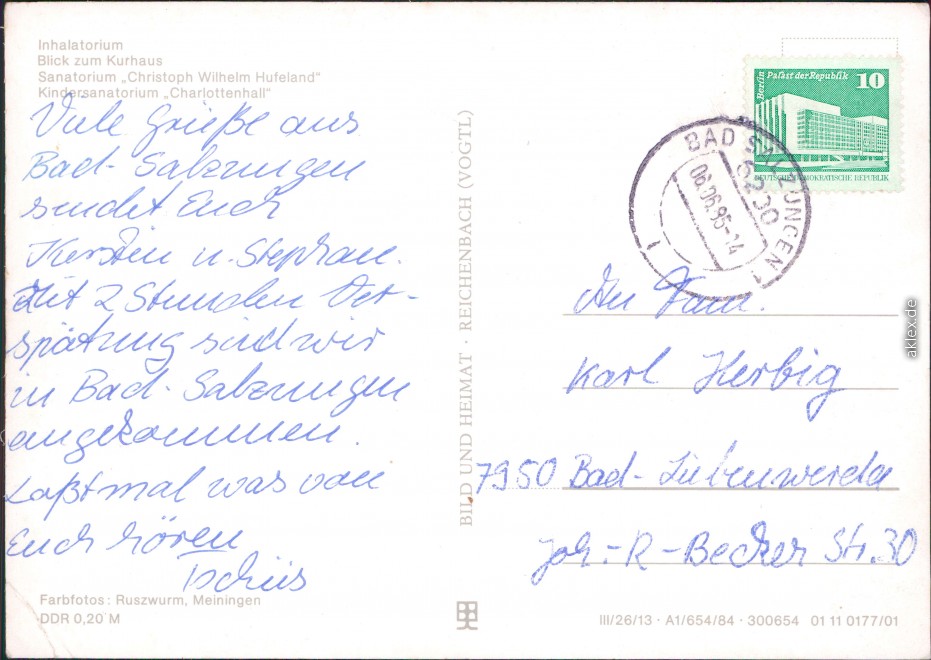 Inhalatorium
Blick zum Kurhaus
Sanatorium „Christoph Wilhelm Hufeland"
Kindersanatorium „Charlottenhall"
Viele Grüße aus
Bad-Salzungen
sendet Euch
Kerstin u. Stephan.
Mit 2 Stunden Ver-
spätung sind wir
in Bad-Salzungen
angekommen.
Laßt mal was von
Euch hören
Tschüs
Farbfotos: Ruszwurm, Meiningen
DDR 0,20 M
BILD UND HEIMAT · REICHENBACH (VOGTL)
Berlin Palast der Republik 10
DEUTSCHE DEMOKRATISCHE REPUBLIK
BAD SALZUNGEN 1
6230
06.06.86-14
An Fam.
Karl Herbig
7950 Bad-Liebenwerda
Joh.-R-Becher Str. 30
III/26/13 · A1/654/84 · 300654 01 11 0177/01
aklex.de